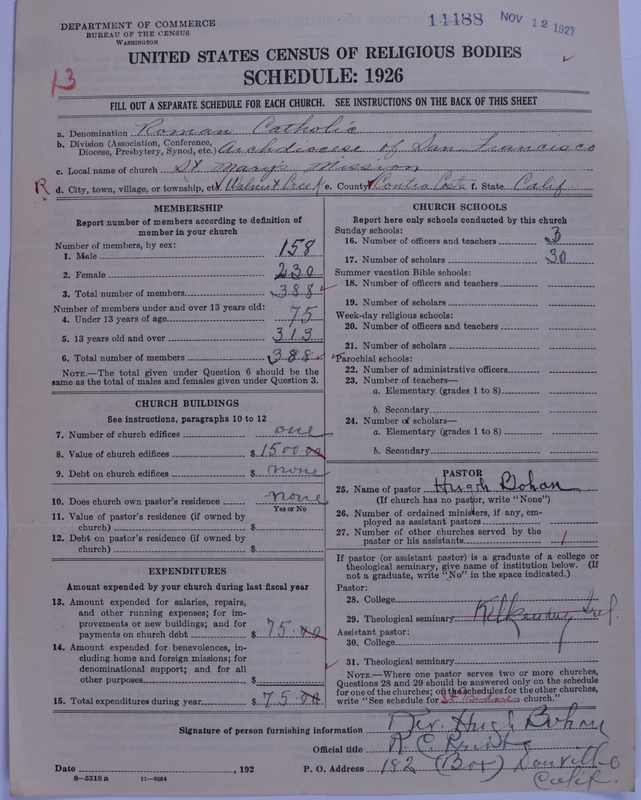 DEPARTMENT OF COMMERCE
BUREAU OF THE CENSUS
WASHINGTON
11488 NOV 12 1927
UNITED STATES CENSUS OF RELIGIOUS BODIES
SCHEDULE: 1926
13
FILL OUT A SEPARATE SCHEDULE FOR EACH CHURCH. SEE INSTRUCTIONS ON THE BACK OF THIS SHEET
a. Denomination Roman Catholic
b. Division (Association, Conference,
Diocese, Presbytery, Synod, etc.) Archdiocese of San Francisco
c. Local name of church St Mary's Mission
R d. City, town, village, or township, etc. Walnut Creek e. County Contra Costa f. State Calif
MEMBERSHIP
Report number of members according to definition of
member in your church
Number of members, by sex:
1. Male 158
2. Female 230
3. Total number of members 388
Number of members under and over 13 years old:
4. Under 13 years of age 75
5. 13 years old and over 313
6. Total number of members 388
NOTE.—The total given under Question 6 should be
same as the total of males and females given under Question 3.
CHURCH BUILDINGS
See instructions, paragraphs 10 to 12
7. Number of church edifices one
8. Value of church edifices $ 1500 00
9. Debt on church edifices $ none
10. Does church own pastor's residence none
Yes or No
11. Value of pastor's residence (if owned by
church) $
12. Debt on pastor's residence (if owned by
church) $
EXPENDITURES
Amount expended by your church during last fiscal year
13. Amount expended for salaries, repairs,
and other running expenses; for im-
provements or new buildings; and for
payments on church debt $ 75.00
14. Amount expended for benevolences, in-
cluding home and foreign missions; for
denominational support; and for all
other purposes $
15. Total expenditures during year $ 75.00
CHURCH SCHOOLS
Report here only schools conducted by this church
Sunday schools:
16. Number of officers and teachers 3
17. Number of scholars 30
Summer vacation Bible schools:
18. Number of officers and teachers
19. Number of scholars
Week-day religious schools:
20. Number of officers and teachers
21. Number of scholars
Parochial schools:
22. Number of administrative officers
23. Number of teachers—
a. Elementary (grades 1 to 8)
b. Secondary
24. Number of scholars—
a. Elementary (grades 1 to 8)
b. Secondary
PASTOR
25. Name of pastor Hugh Bohan
(If church has no pastor, write "None")
26. Number of ordained ministers, if any, em-
ployed as assistant pastors
27. Number of other churches served by the
pastor or his assistants 1
If pastor (or assistant pastor) is a graduate of a college or
theological seminary, give name of institution below. (If
not a graduate, write "No" in the space indicated.)
Pastor:
28. College
29. Theological seminary Kilkenny Irel.
Assistant pastor:
30. College
31. Theological seminary
NOTE.—Where one pastor serves two or more churches,
Questions 28 and 29 should be answered only on the schedule
for one of the churches; on the schedules for the other churches,
write "See schedule for church."
Signature of person furnishing information Rev. Hugh Bohan
Official title R. C.
Date , 192 P. O. Address 182 (Box) Danville
Calif.
8-5518 a 11-9064